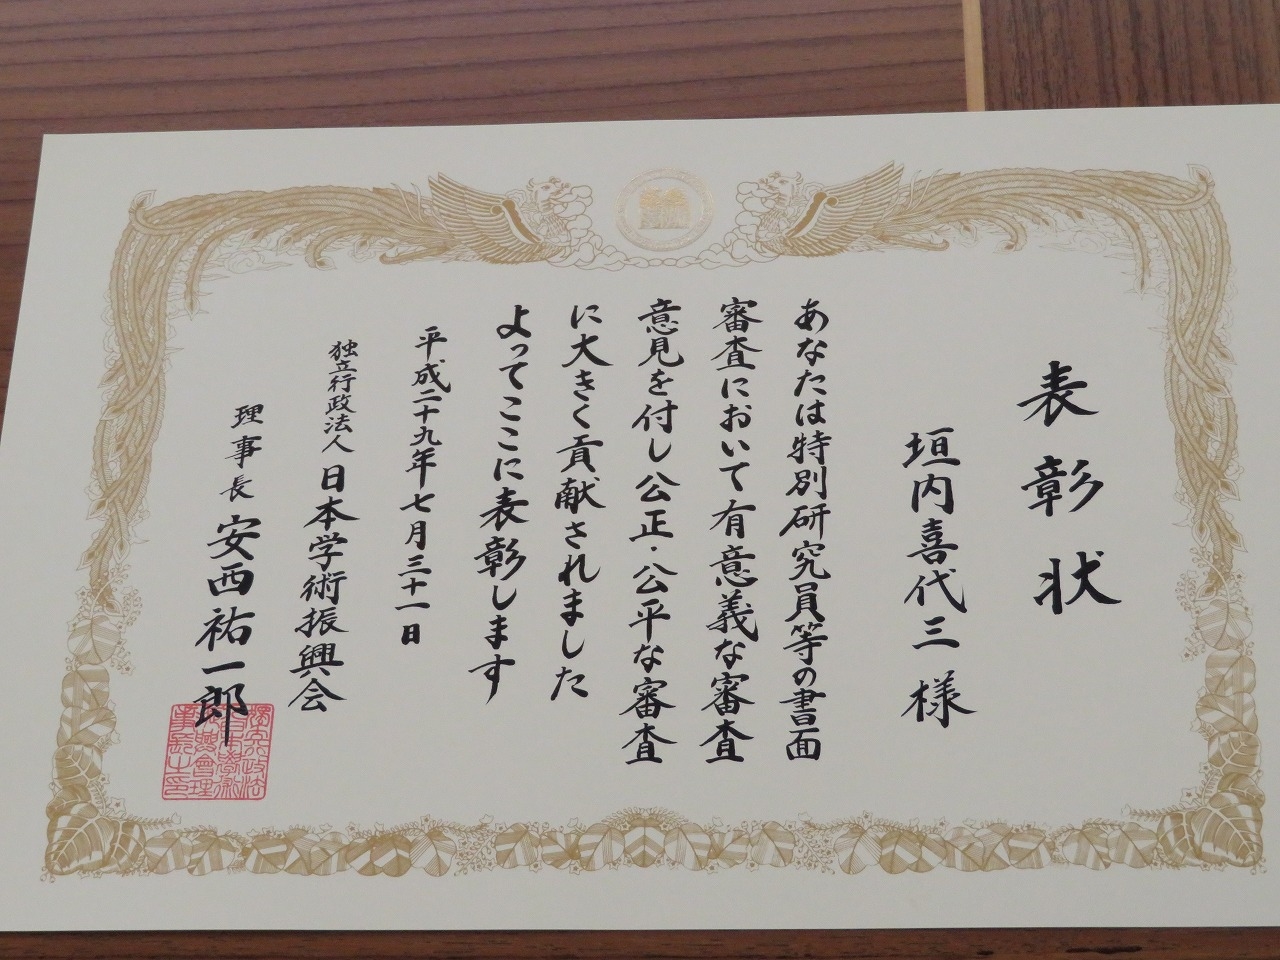 表彰状
垣内喜代三様
あなたは特別研究員等の書面
審査において有意義な審査
意見を付し公正・公平な審査
に大きく貢献されました
よってここに表彰します
平成二十九年七月三十一日
独立行政法人日本学術振興会
理事長 安西祐一郎